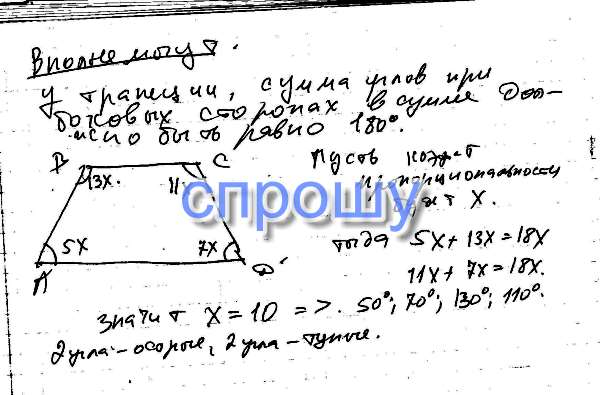 Вполне могут.
У трапеции, сумма углов при
боковых сторонах в сумме дол-
жно быть равно 180°.
B
C
Пусть коэфт
13x.
11x
пропорциональности
будет X.
спрошу
5x
7x
A
D
тогда 5x + 13x = 18x
11x + 7x = 18x.
значит x = 10 => 50°; 70°; 130°; 110°.
2 угла - острые, 2 угла - тупые.